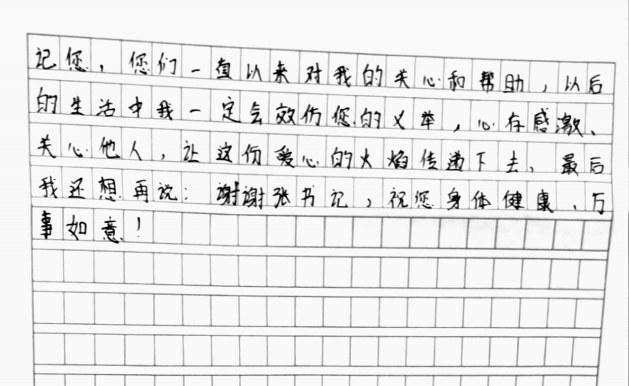 记您，您们一直以来对我的关心和帮助，以后
的生活中我一定会效仿您的义举，心存感激、
关心他人，让这份爱心的火焰传递下去、最后
我还想再说：谢谢张书记，祝您身体健康、万
事如意！